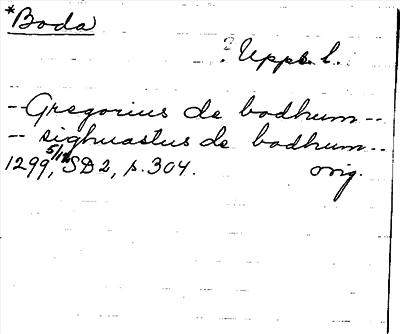 *Boda
? Upps. l.
-- Gregorius de bodhum --
-- sighuastus de bodhum --
1299, 5/12 SD 2, s. 304. orig.